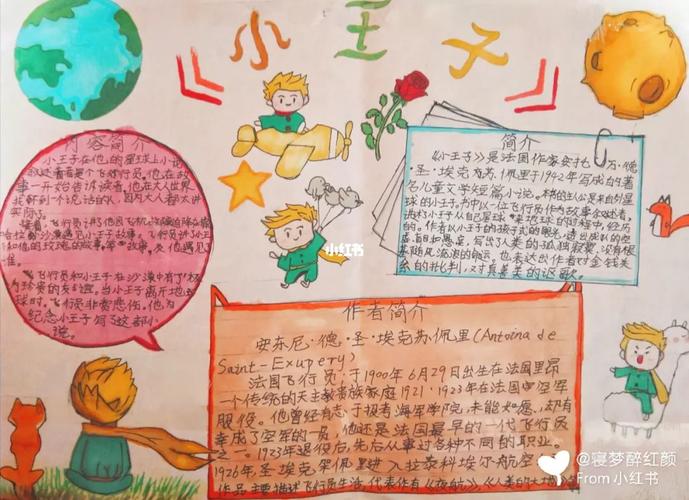 《小王子》
内容简介
小王子在他的星球上小说
叙述者是个飞行员。他在故
事一开始告诉读者,他在大人世界
找不到个说话的人,因为大人都太讲
实际了。
接着,飞行员讲了他因飞机故障迫降在撒
哈拉沙漠遇见小王子故事。飞行员讲了小王
和他的玫瑰的故事。
飞行员和小王子在沙漠中有了极
为珍贵的友谊。当小王子离开地
球时。飞行员非常悲伤。他为
纪念小王子写了这部小
说。
简介
《小王子》是法国作家安托万·德
·圣·埃克苏佩里于1942年写成的著
名儿童文学短篇小说。本书的主人公是来自外星
球的小王子。书中以一位飞行员作为故事叙述者,
讲述了小王子从自己星球
的。作者以小王子的孩子式的眼光,透出成人的空
虚,盲目和愚妄,写出了人类的孤独寂寞,没有根
基随风流浪的命运。也表达出作者对金钱关
系的批判,对真善美的讴歌。
小红书
作者简介
安东尼·德·圣·埃克苏佩里(Antoina de
Saint-Exupery)
法国飞行员,于1900年6月29日出生在法国里昂
一个传统的天主教贵族家庭1921-1923年在法国空军
服役。他曾经有志于报考海军学院,未能如愿,却有
幸成了空军的一员,他还是法国最早的一代飞行员
之一。1923年退役后,先后从事过各种不同的职业。
1926年圣·埃克苏佩里进入拉泰科埃尔航空
作品主要描述飞行员生活,代表作有《夜航》《人类的大地》
@寝梦醉红颜
From 小红书